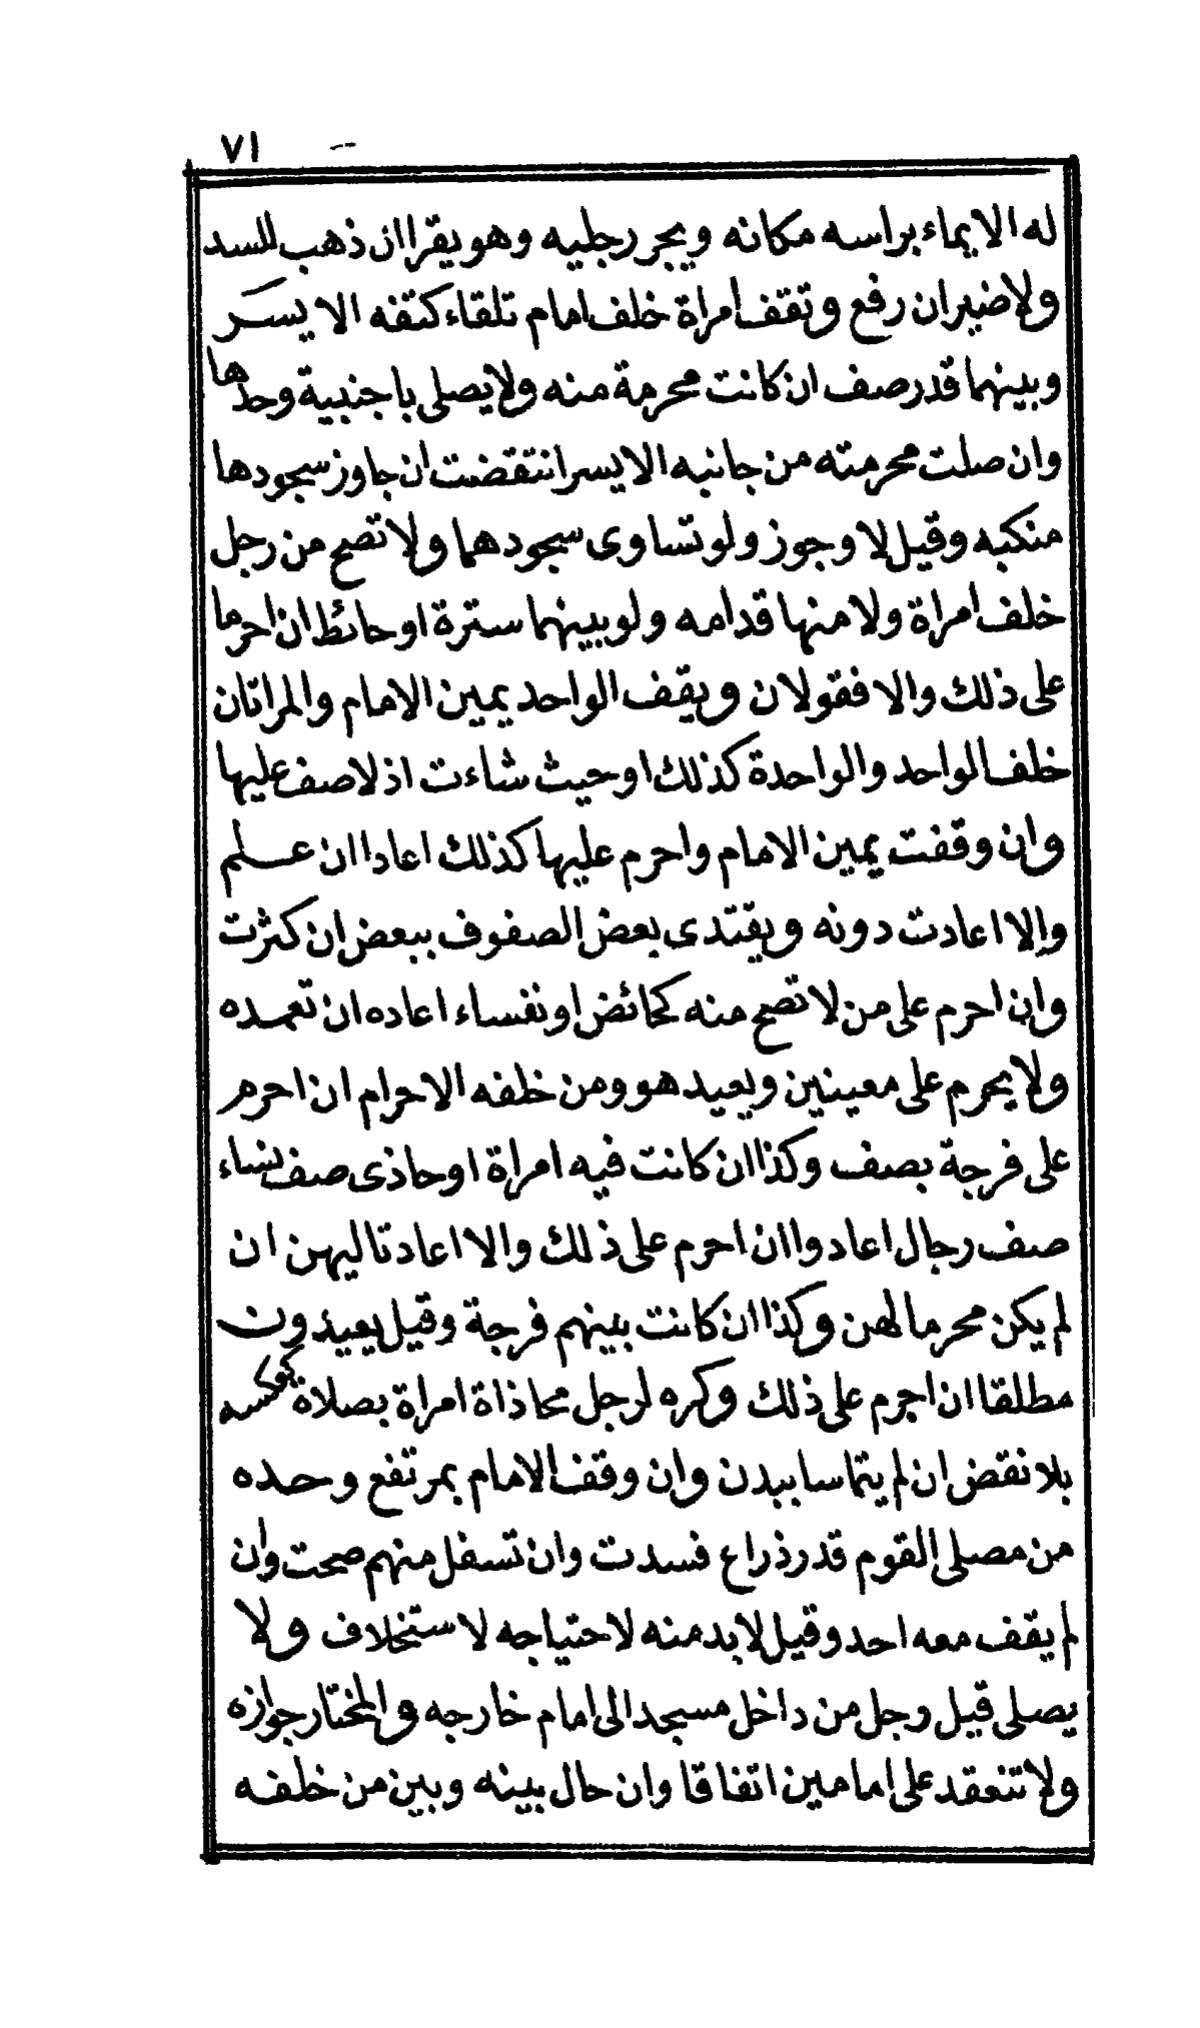 ٧١
له الايماء براسه مكانه ويجر رجليه وهو يقرا ان ذهب للسد
ولا ضير ان رفع وتقف امراة خلف امام تلقاء كتفه الايسر
وبينهما قدر صف ان كانت محرمة منه ولا يصلى باجنبية وحدها
وان صلت محرمته من جانبه الايسر انتقضت ان جاوز سجودها
منكبه وقيل لا وجوز ولو تساوى سجودهما ولا تصح من رجل
خلف امراة ولا منها قدامه ولو بينهما سترة او حائط ان احرما
على ذلك والا فقولان ويقف الواحد يمين الامام والمراتان
خلف الواحد والواحدة كذلك او حيث شاءت اذ لا صف عليها
وان وقفت يمين الامام واحرم عليها كذلك اعادا ان علم
والا اعادت دونه ويقتدى بعض الصفوف ببعض ان كثرت
وان احرم على من لا تصح منه كحائض او نفساء اعاده ان تعمده
ولا يحرم على معينين ويعيد هو ومن خلفه الاحرام ان احرم
على فرجة بصف وكذا ان كانت فيه امراة او حاذى صف نساء
صف رجال اعادوا ان احرم على ذلك والا اعادتا ليهن ان
لم يكن محرما لهن وكذا ان كانت بينهم فرجة وقيل يعيدون
مطلقا ان احرم على ذلك وكره لرجل محاذاة امراة بصلاة كعكسه
بلا نقض ان لم يتماسا ببدن وان وقف الامام بمرتفع وحده
من مصلى القوم قدر ذراع فسدت وان تسفل منهم صحت وان
لم يقف معه احد وقيل لا بد منه لاحتياجه لاستخلاف ولا
يصلى قيل رجل من داخل مسجد الى امام خارجه والمختار جوازه
ولا تنعقد على امامين اتفاقا وان حال بينه وبين من خلفه